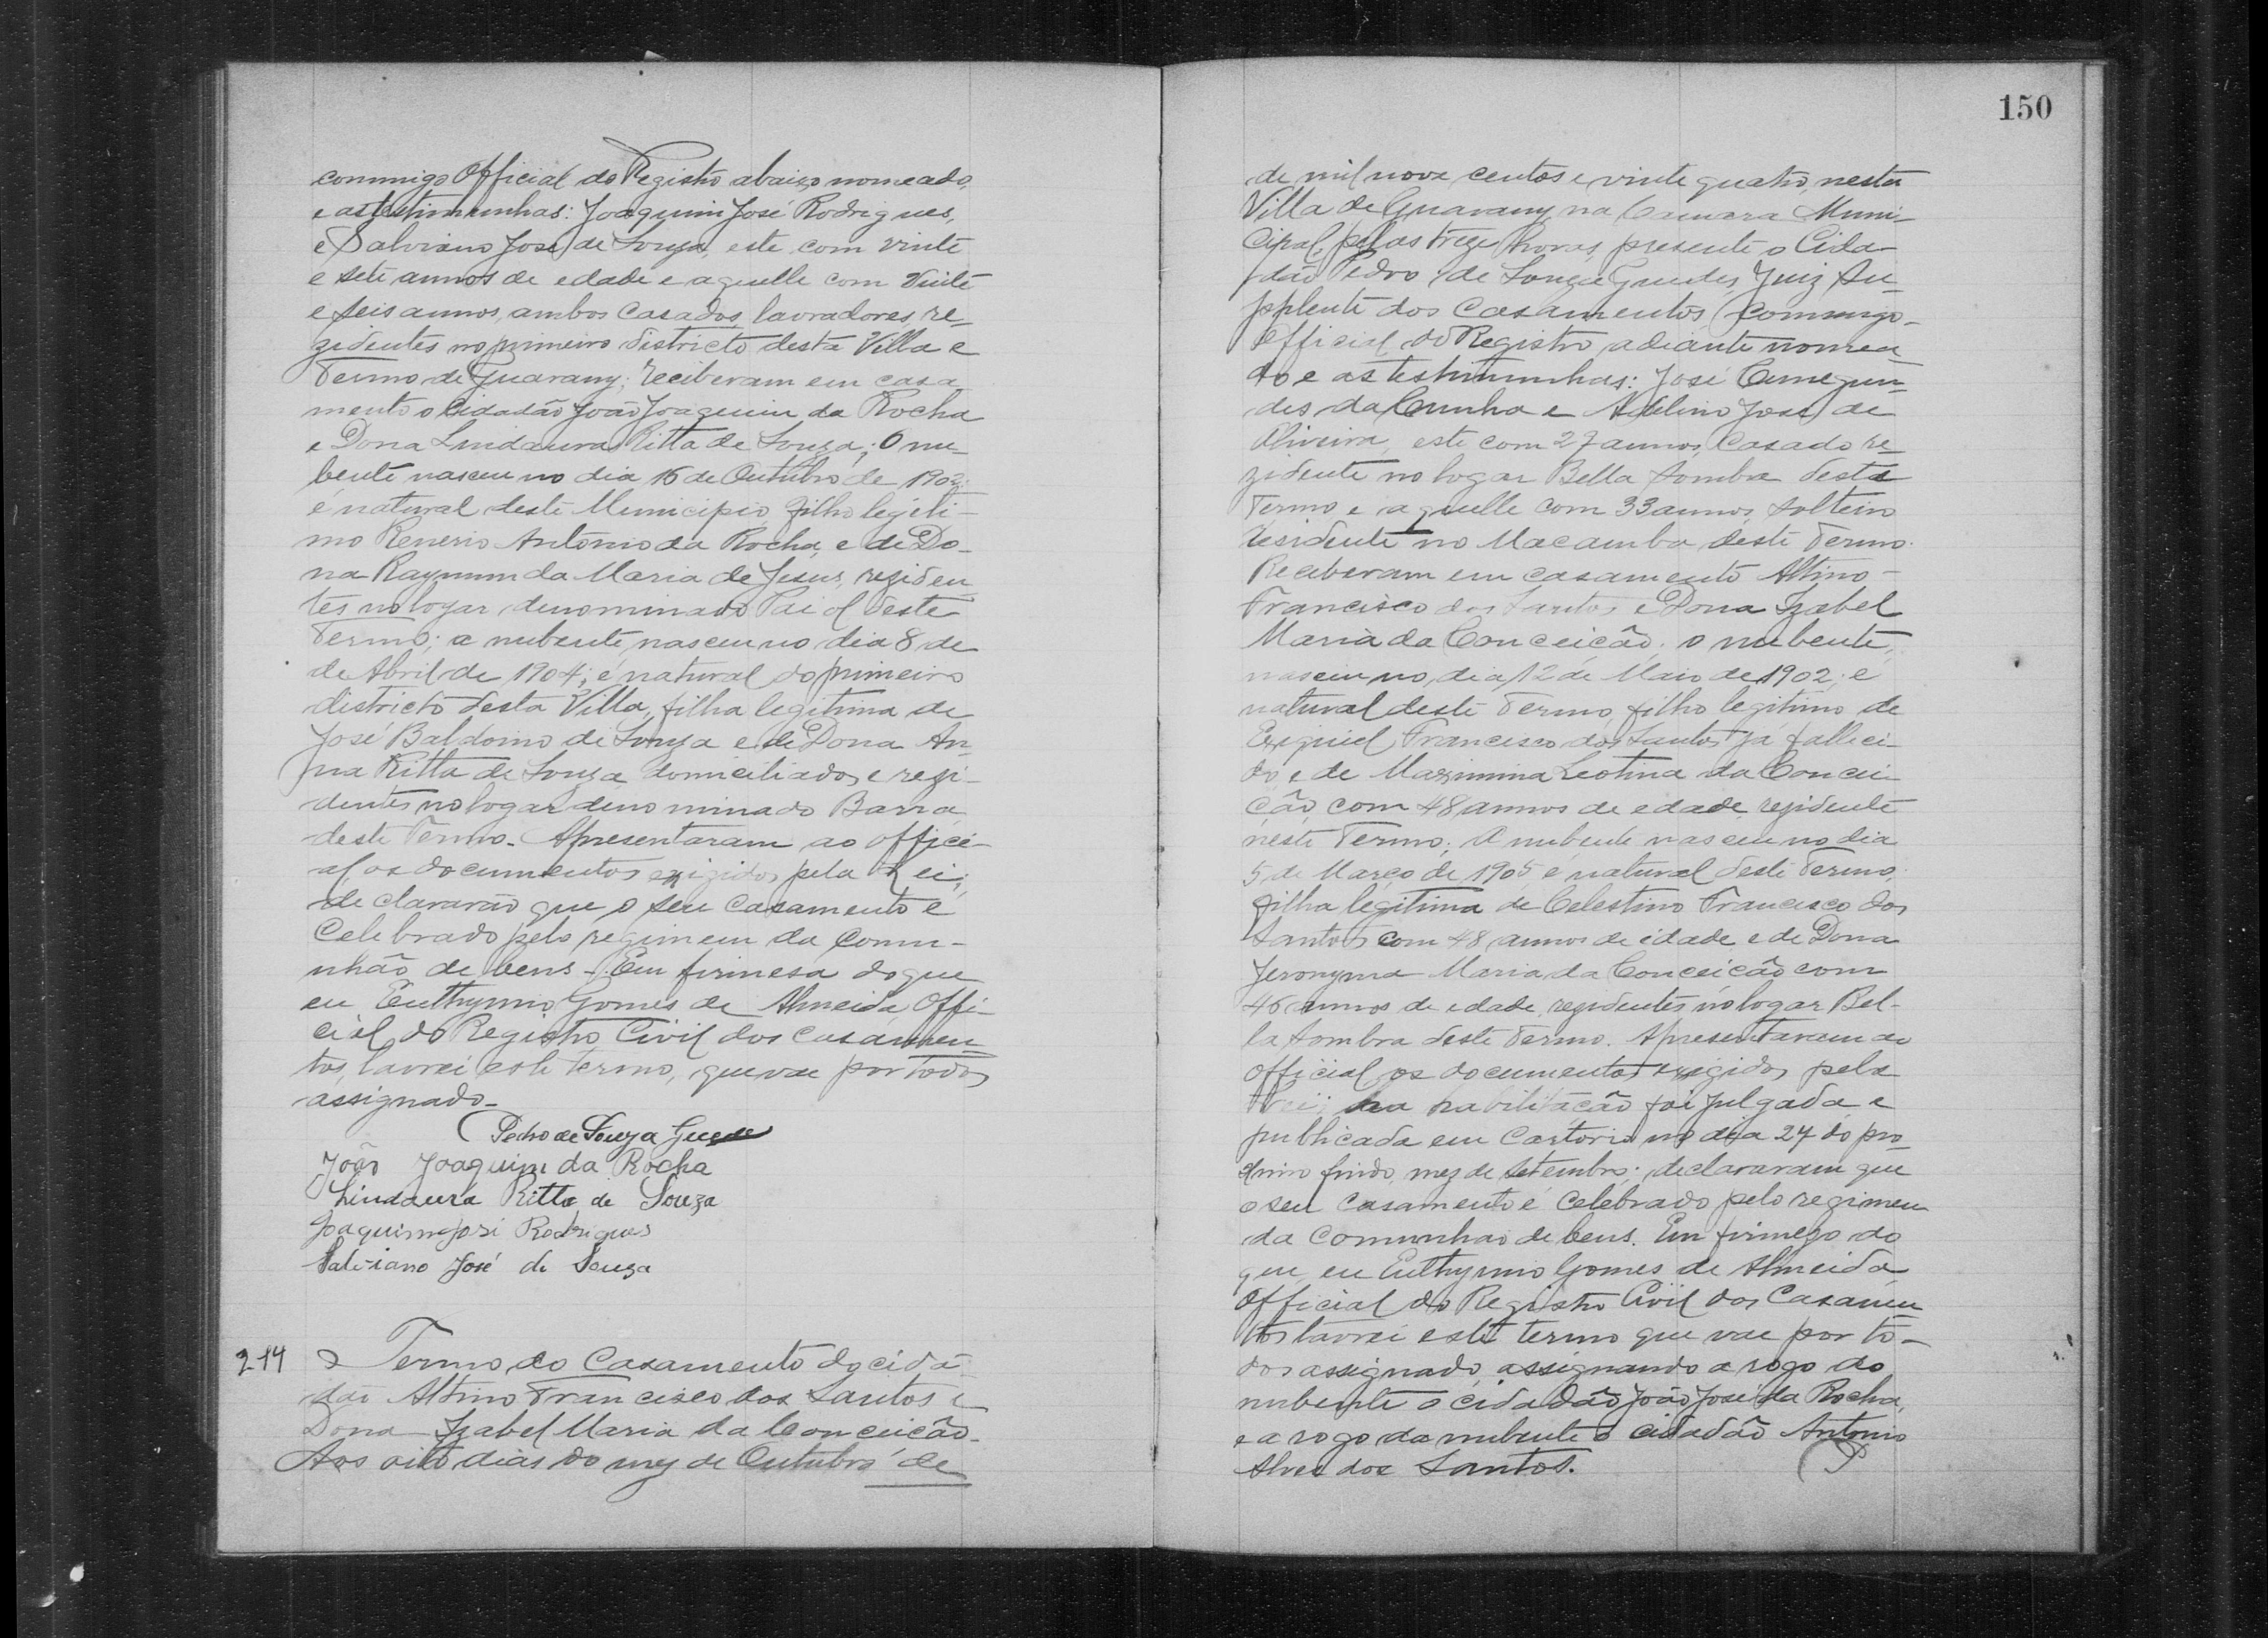 commigo Official do Registro abaixo nomeado,
e as testimunhas: Joaquim José Rodrigues,
e Salviano José de Souza, este com vinte
e sete annos de edade e aquelle com vinte
e seis annos, ambos casados, lavradores, re-
zidentes no primeiro districto desta Villa e
Termo de Guarany; receberam em casa
mento o Cidadão João Joaquim da Rocha
e Dona Lindaura Ritta de Souza; O nu-
bente nasceu no dia 16 de Outubro de 1902;
é natural deste Municipio, filho legiti-
mo Renerio Antonio da Rocha, e de Do-
na Raymunda Maria de Jesus, reziden
tes no logar denominado Paiol deste
Termo; a nubente, nasceu no dia 8 de
de Abril de 1904; é natural do primeiro
districto desta Villa, filha legitima de
José Baldoino de Souza e de Dona An-
na Ritta de Souza domiciliados e rezi-
dentes no logar denominado Barra
deste Termo. Apresentaram ao offici-
al, os documentos exigidos pela Lei;
declararão que o seu casamento é
Celebrado pelo regimem da commu-
nhão de bens. Em firmesa do que
eu Euthymio Gomes de Almeida Offi-
cial do Registro Civil dos casamen-
tos, lavrei este termo, que vae por todos
assignado.
Pedro de Souza Guedes
João Joaquim da Rocha
Lindaura Ritta de Souza
Joaquim José Rodrigues
Salviano José de Souza
214 Termo do Casamento do cida-
dão Altino Francisco dos Santos e
Dona Izabel Maria da Conceicão.
Aos oito dias do mez de Outubro de
150
de mil nove centos e vinte quatro, nesta
Villa de Guarany, na Camara Muni-
cipal, pelas treze horas, presente o Cida-
dão Pedro de Souza Guedes, Juiz Su-
pplente dos Casamentos, commigo
Official do Registro adiante nomea
do e as testimunhas: José Cunegun-
des da Cunha e Adelino José de
Oliveira, este com 27 annos, casado re-
zidente no logar Bella Sombra deste
Termo e aquelle com 33 annos, solteiro
residente no Macamba deste Termo.
Receberam em casamento Altino
Francisco dos Santos e Dona Izabel
Maria da Conceicão; o nubente,
nasceu no dia 12 de Maio de 1902; e
natural deste Termo, filho legitimo de
Ezequiel Francisco dos Santos já falleci-
do e de Maximina Leotina da Concei
ção, com 48 annos de edade rezidente
neste Termo; A nubente nasceu no dia
5 de Março de 1905, é natural deste Termo,
filha legitima de Celestino Francisco dos
Santos com 48 annos de idade e de Dona
Jeronyma Maria da Conceicão com
46 annos de edade, rezidentes no logar Bel-
la Sombra deste Termo. Apresentaram ao
official os documentos exigidos pela
Lei; sua habilitação foi julgada e
publicada em Cartorio no dia 27 do pro-
ximo findo, mez de Setembro; declararam que
o seu casamento é celebrado pelo regimen
da communhão de bens. Em firmeza do
que eu Euthymio Gomes de Almeida
Official do Registro Civil dos Casamen
tos lavrei este termo que vae por to-
dos assignado, assignando a rogo do
nubente o cidadão João José da Rocha,
e a rogo da nubente o cidadão Antonio
Alves dos Santos.